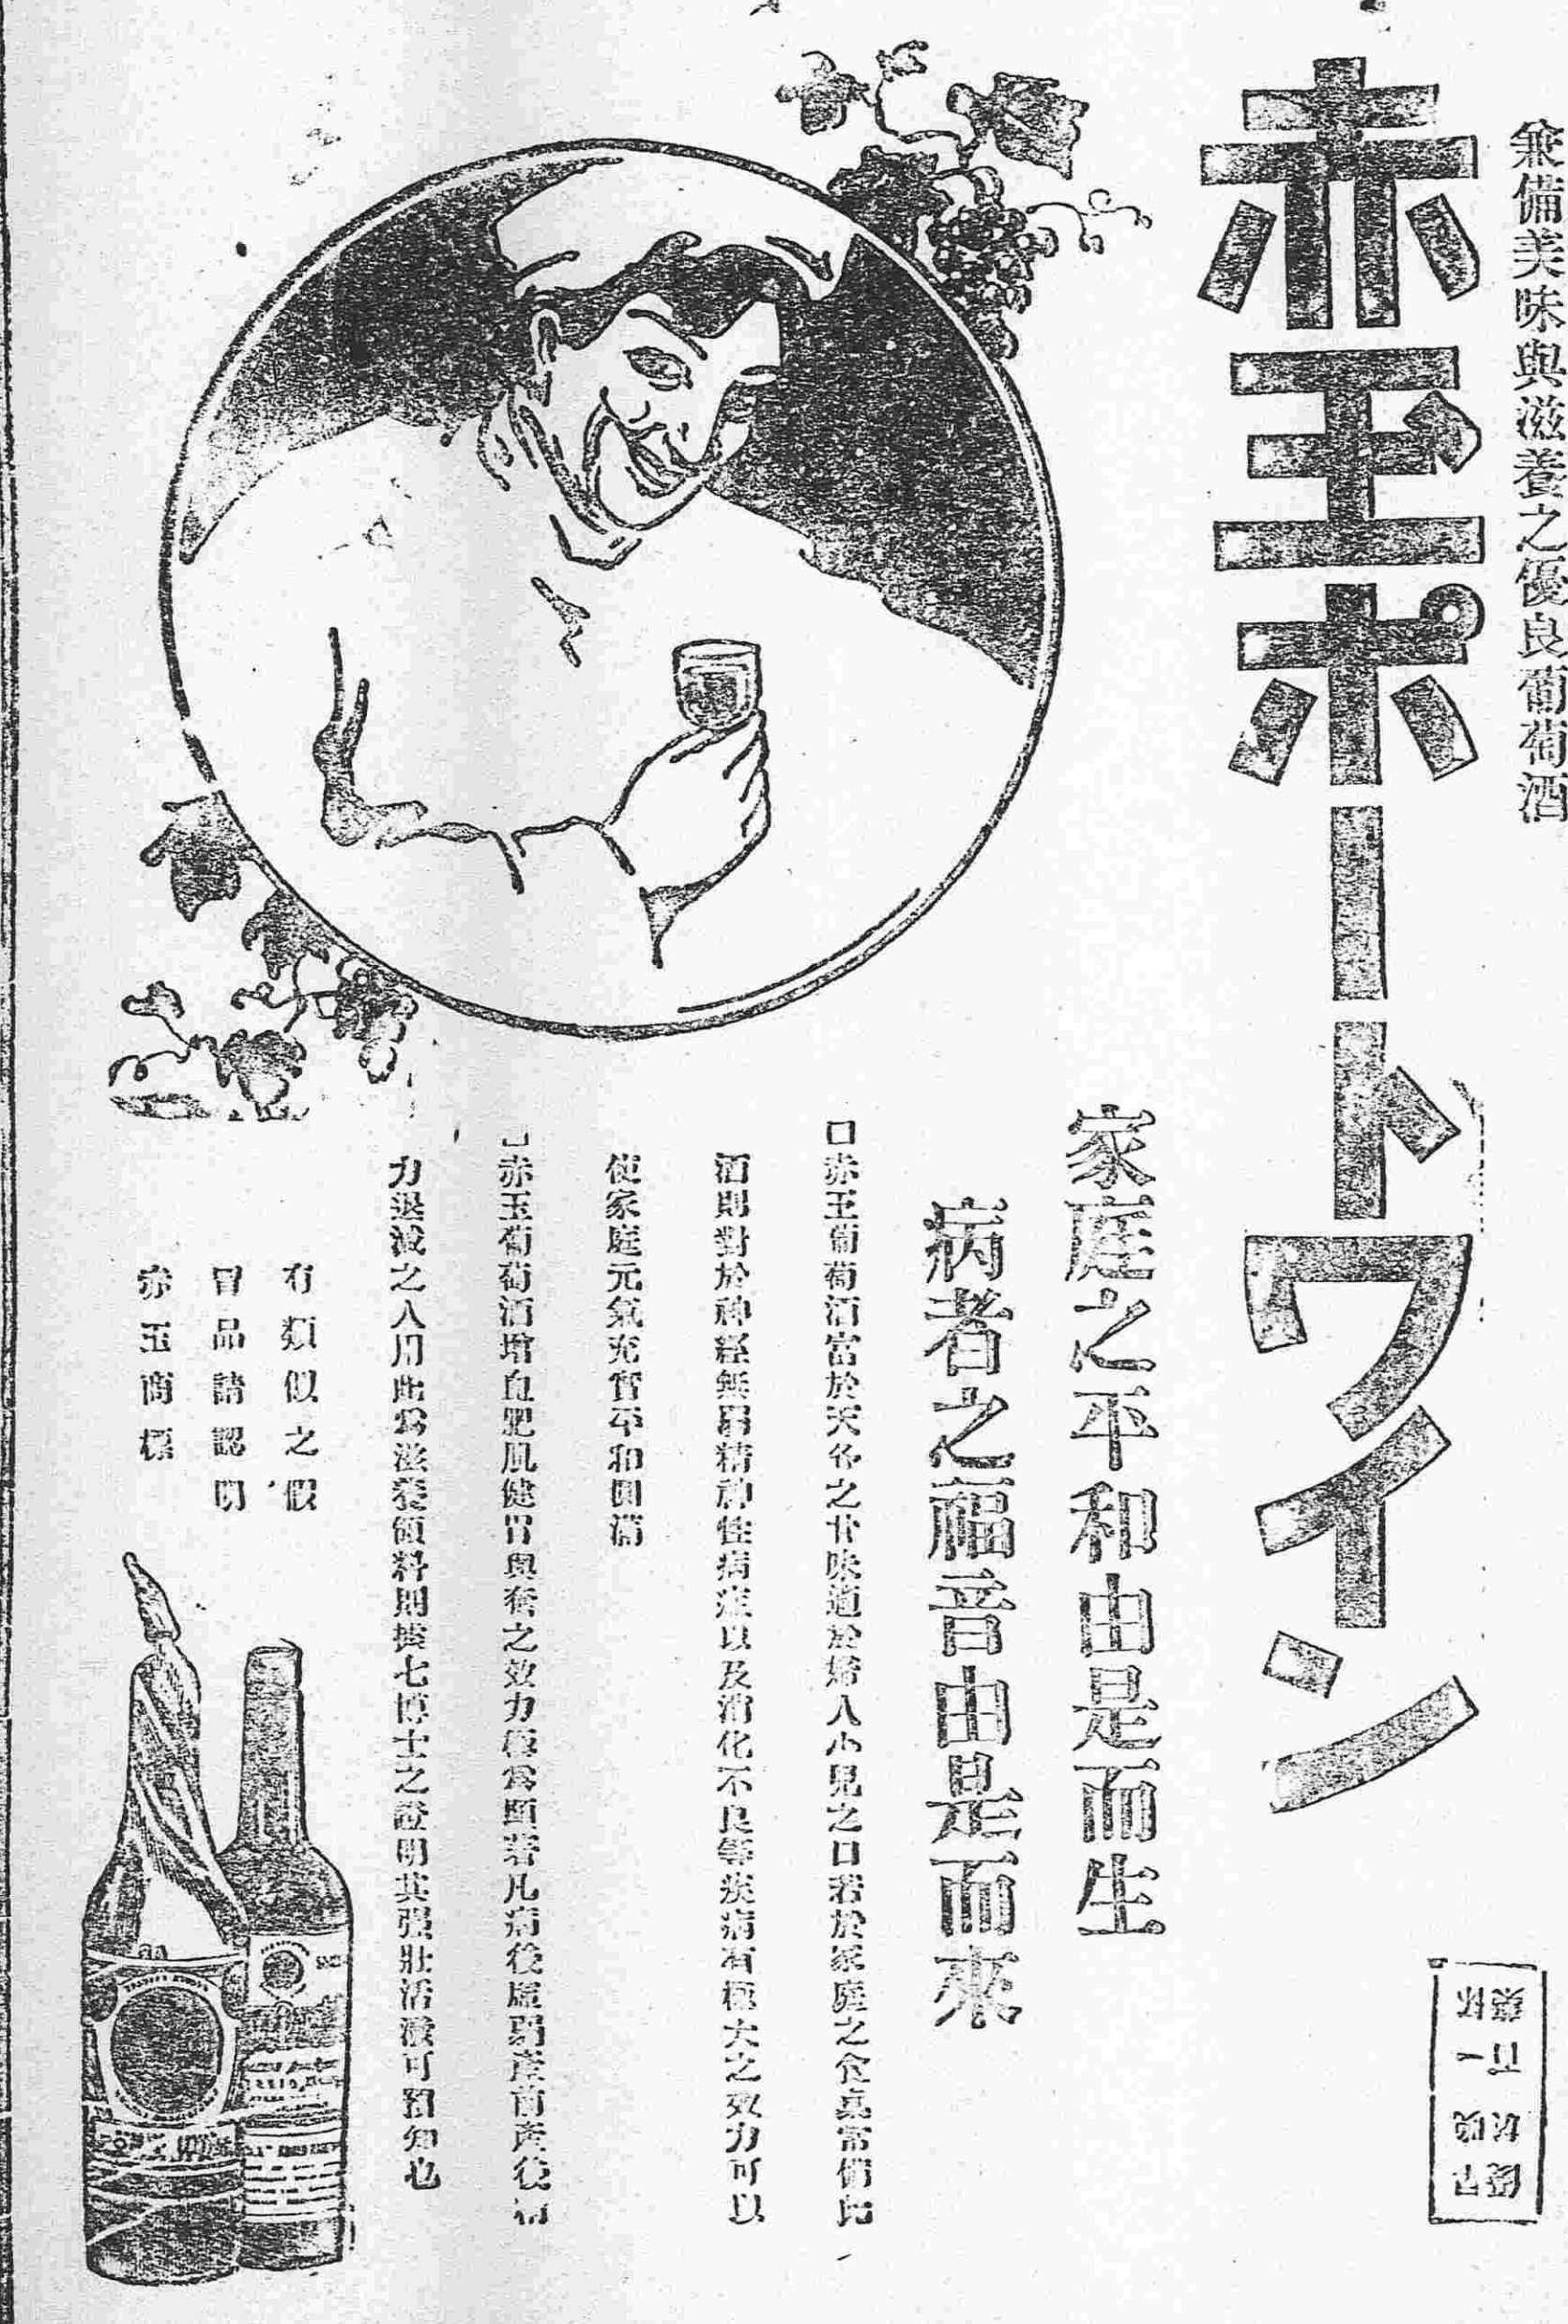 兼備美味與滋養之優良葡萄酒
赤玉ポートワイン
家庭之平和由是而生
病者之福音由是而來
口赤玉葡萄酒富於天然之甘味適於婦人小兒之口若於家庭之食桌常備此
酒則對於神經無弱精神性病症以及消化不良等疾病有極大之效力可以
使家庭元氣充實平和圓滿
口赤玉葡萄酒增血肥肌健胃與奮之效力極爲顯著凡病後虛弱產前產後
力退減之人用此爲滋養料則據七博士之證明其强壯活潑可預知也
有類似之假
冒品請認明
赤玉商標